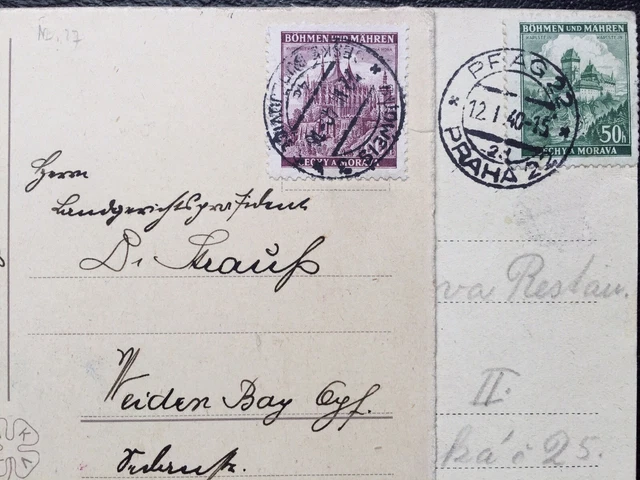 BÖHMEN UND MÄHREN
ČECHY A MORAVA
BÖHMEN UND MÄHREN
KARLSTEIN
50h
ČECHY A MORAVA
PRAG 22
12. I. 40-15
PRAHA 22
Herrn
Landgerichtspräsident
Dr. Strauß
Weiden Bay Opf.
va Restau.
II.
ká č 25.